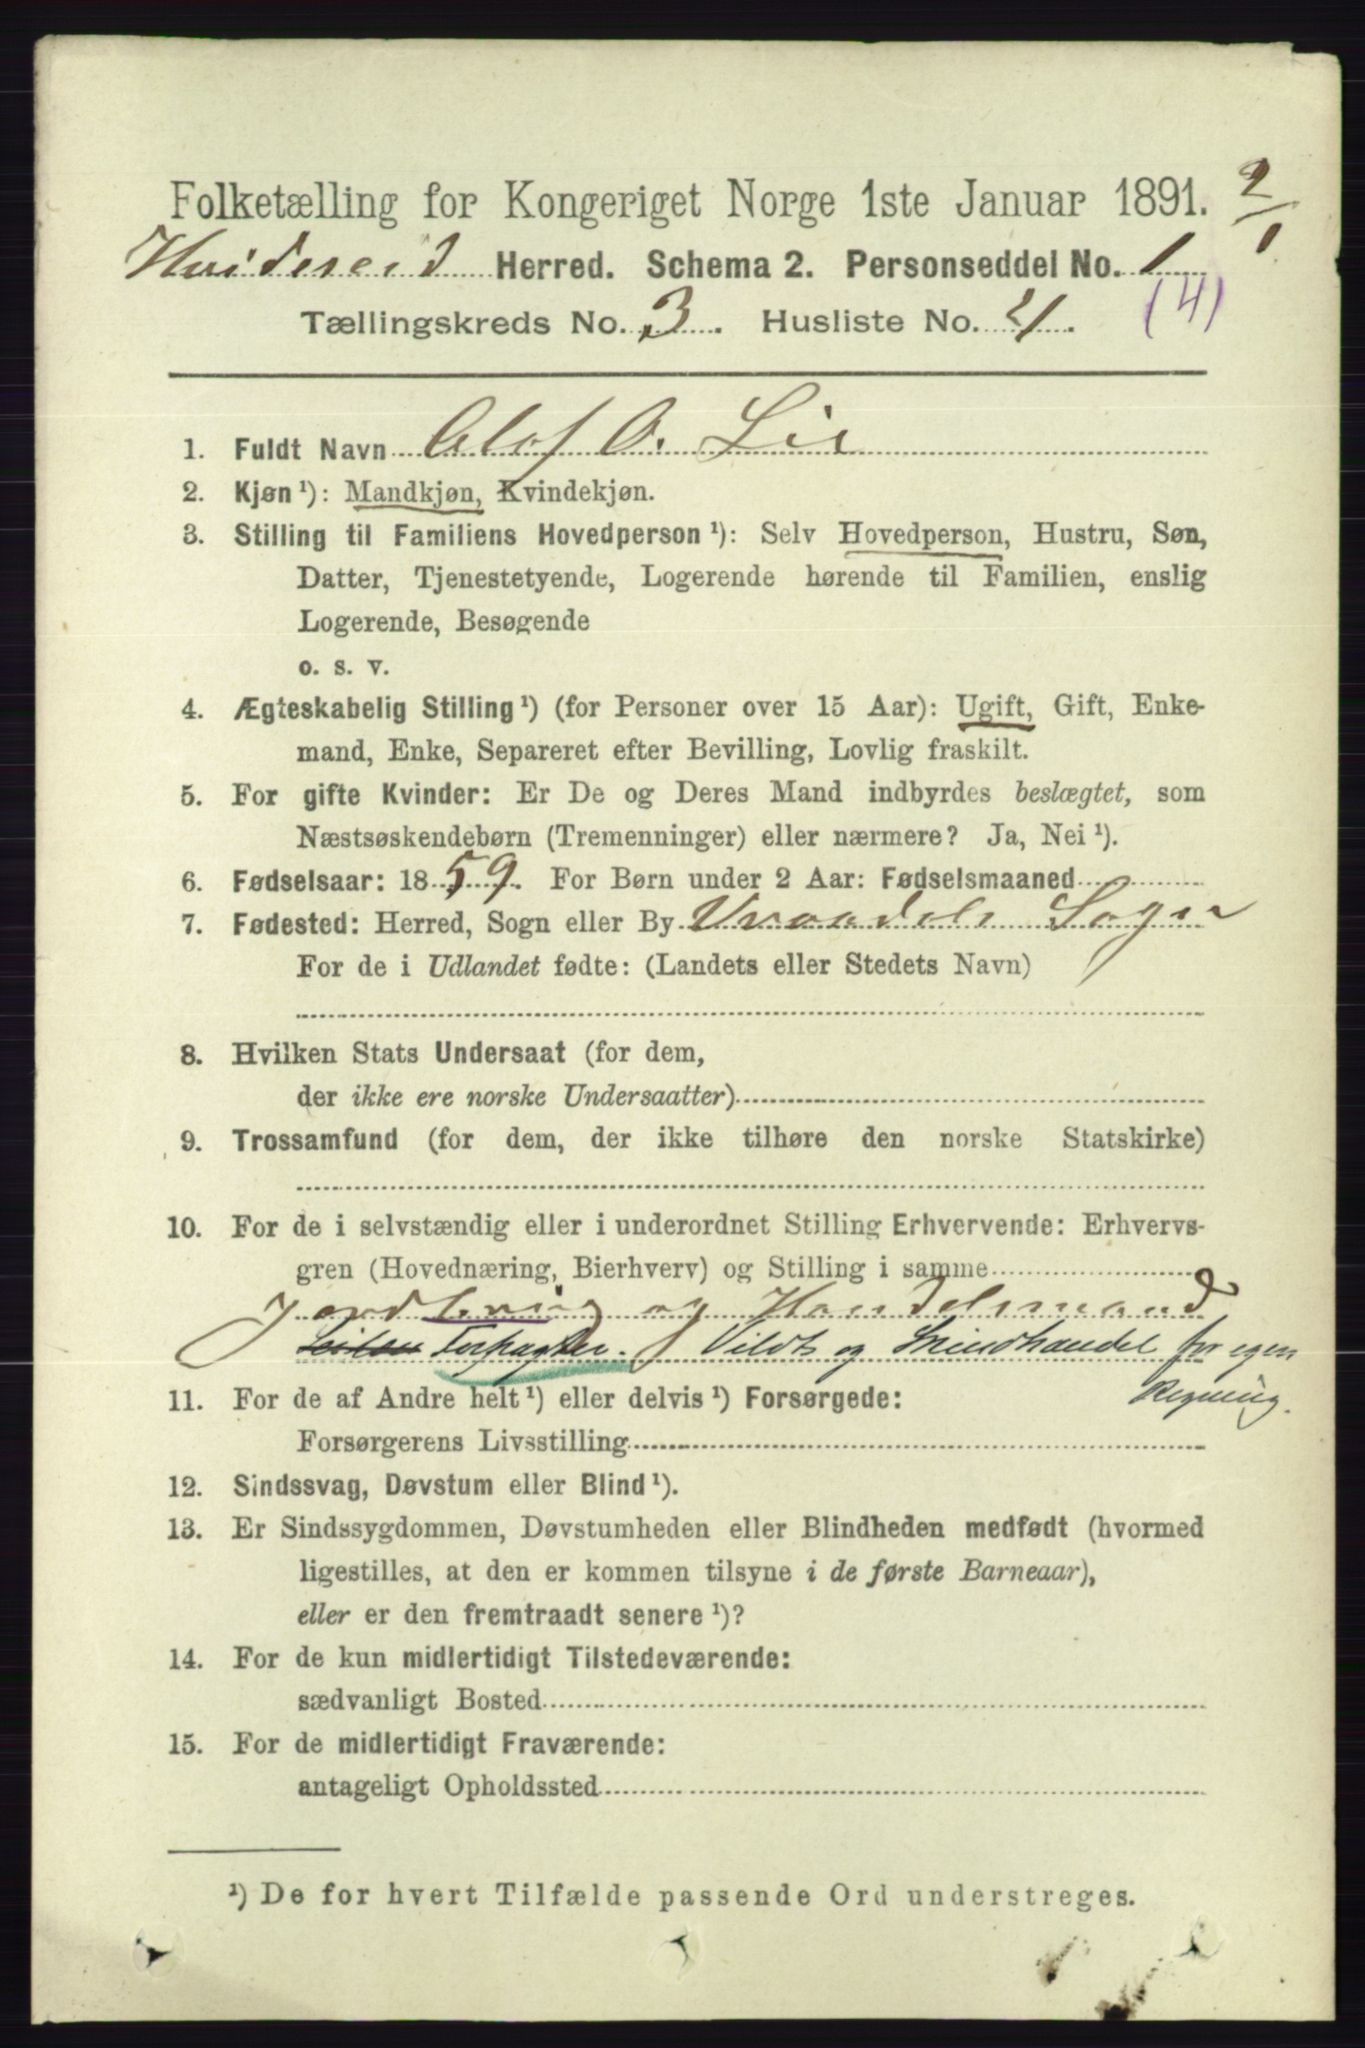 Folketælling for Kongeriget Norge 1ste Januar 1891. 2/1
Hvideseid Herred. Schema 2. Personseddel No. 1
Tællingskreds No. 3. Husliste No. 4. (4)
1. Fuldt Navn Olof O. Lie
2. Kjøn ¹): Mandkjøn, Kvindekjøn.
3. Stilling til Familiens Hovedperson ¹): Selv Hovedperson, Hustru, Søn,
Datter, Tjenestetyende, Logerende hørende til Familien, enslig
Logerende, Besøgende
o. s. v.
4. Ægteskabelig Stilling ¹) (for Personer over 15 Aar): Ugift, Gift, Enke-
mand, Enke, Separeret efter Bevilling, Lovlig fraskilt.
5. For gifte Kvinder: Er De og Deres Mand indbyrdes beslægtet, som
Næstsøskendebørn (Tremenninger) eller nærmere? Ja, Nei ¹).
6. Fødselsaar: 1859. For Børn under 2 Aar: Fødselsmaaned
7. Fødested: Herred, Sogn eller By Vraadals Sogn
For de i Udlandet fødte: (Landets eller Stedets Navn)
8. Hvilken Stats Undersaat (for dem,
der ikke ere norske Undersaatter)
9. Trossamfund (for dem, der ikke tilhøre den norske Statskirke)
10. For de i selvstændig eller i underordnet Stilling Erhvervende: Erhvervs-
gren (Hovednæring, Bierhverv) og Stilling i samme
Jordbrug og Handelsmand
Forpagter. Vildt og Skindhandel for egen
Regning.
11. For de af Andre helt ¹) eller delvis ¹) Forsørgede:
Forsørgerens Livsstilling
12. Sindssvag, Døvstum eller Blind ¹).
13. Er Sindssygdommen, Døvstumheden eller Blindheden medfødt (hvormed
ligestilles, at den er kommen tilsyne i de første Barneaar),
eller er den fremtraadt senere ¹)?
14. For de kun midlertidigt Tilstedeværende:
sædvanligt Bosted
15. For de midlertidigt Fraværende:
antageligt Opholdssted
¹) De for hvert Tilfælde passende Ord understreges.